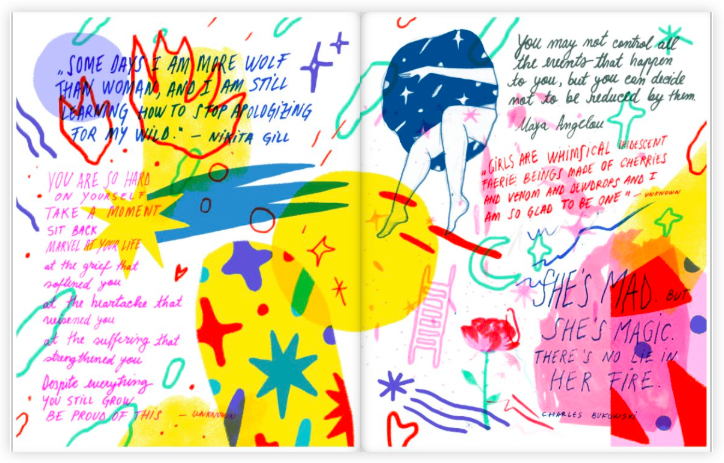 „SOME DAYS I AM MORE WOLF
THAN WOMAN, AND I AM STILL
LEARNING HOW TO STOP APOLOGIZING
FOR MY WILD." — NIKITA GILL
YOU ARE SO HARD
ON YOURSELF
TAKE A MOMENT
SIT BACK
MARVEL AT YOUR LIFE
at the grief that
softened you
at the heartache that
at the suffering that
strengthened you
Despite everything
YOU STILL GROW
BE PROUD OF THIS — UNKNOWN
You may not control all
the events that happen
to you, but you can decide
not to be reduced by them.
Maya Angelou
„GIRLS ARE WHIMSICAL IRIDESCENT
FAERIE BEINGS MADE OF CHERRIES
AND VENOM AND DEWDROPS AND I
AM SO GLAD TO BE ONE" — UNKNOWN
SHE'S MAD. BUT
SHE'S MAGIC.
THERE'S NO LIE IN
HER FIRE.
CHARLES BUKOWSKI